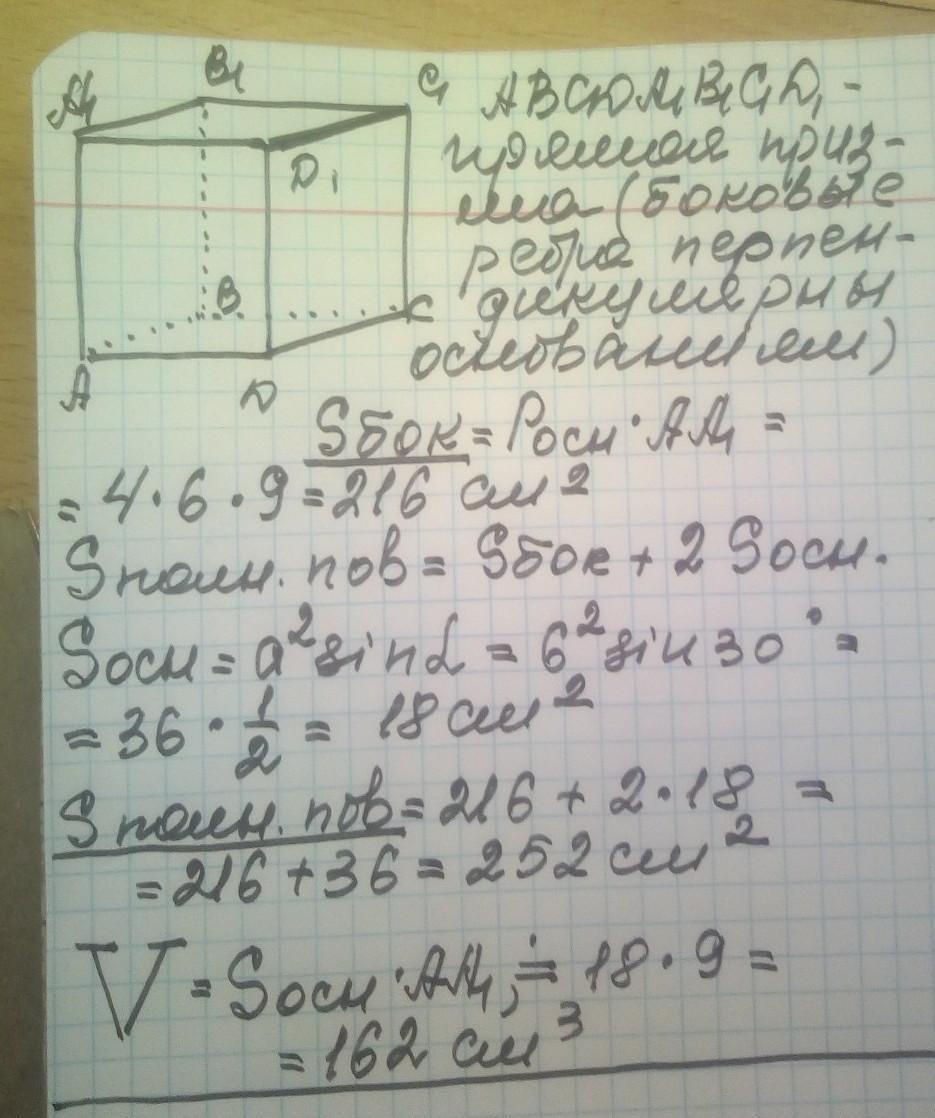 B₁
A₁
C₁
D₁
B
C
A
D
ABCDA₁B₁C₁D₁ -
прямая приз-
ма (боковые
ребра перпен-
дикулярны
основаниям)
Sбок = Pосн · AA₁ =
= 4 · 6 · 9 = 216 см²
Sполн. пов = Sбок + 2 Sосн.
Sосн = a² sin α = 6² sin 30° =
= 36 · 1/2 = 18 см²
Sполн. пов = 216 + 2 · 18 =
= 216 + 36 = 252 см²
V = Sосн · AA₁ = 18 · 9 =
= 162 см³